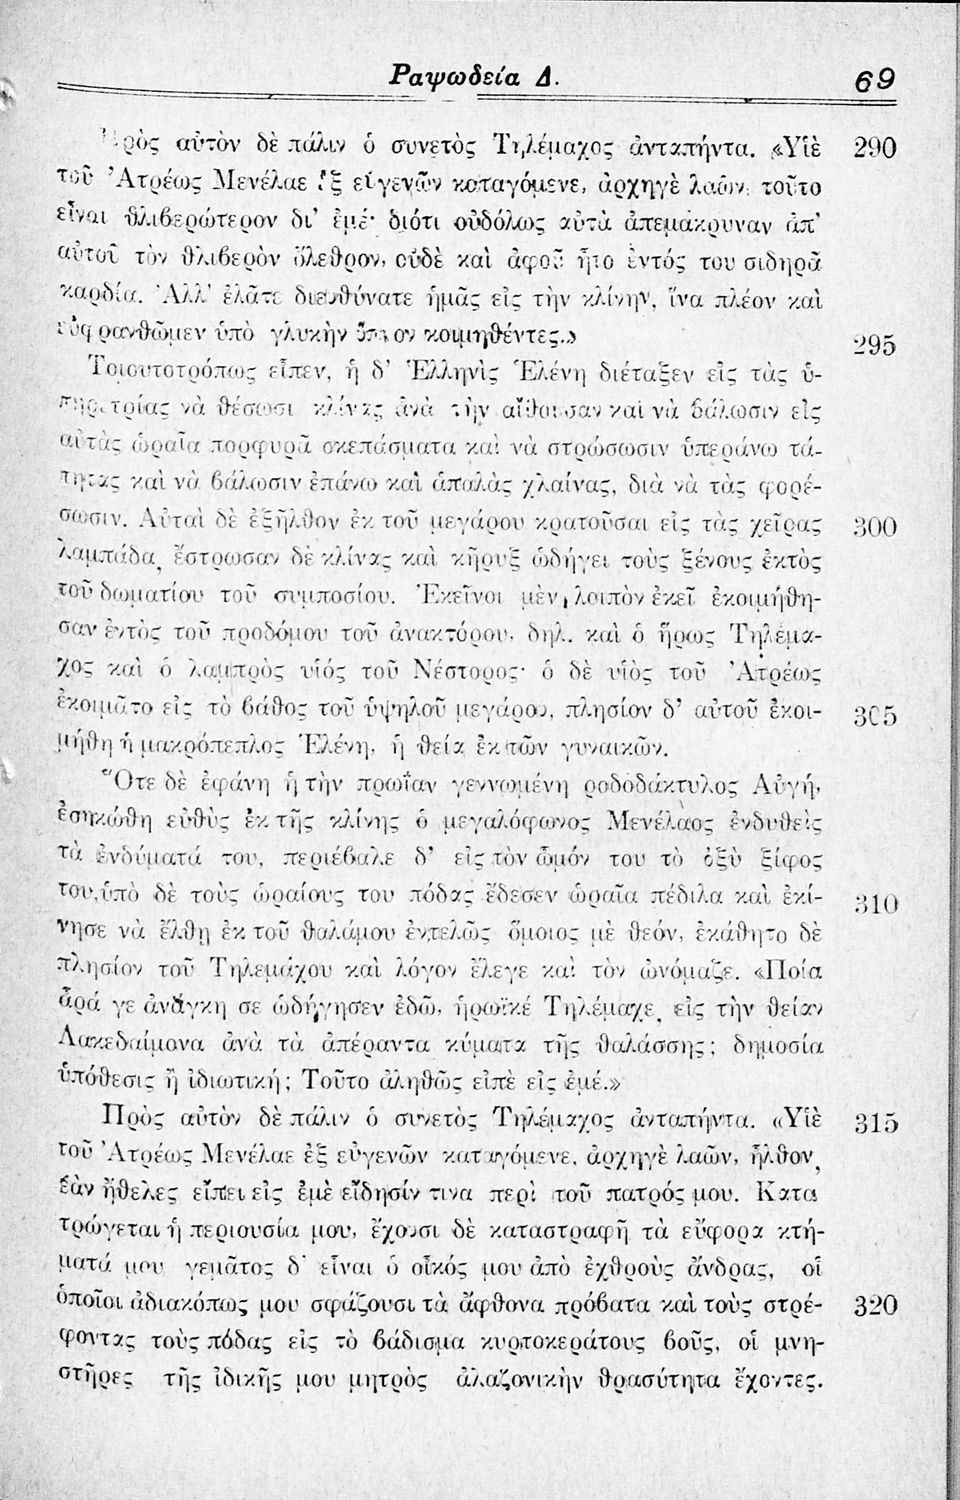 Ραψωδεία Δ. 69
Πρὸς αὐτὸν δὲ πάλιν ὁ συνετὸς Τηλέμαχος ἀνταπήντα. «Υἱὲ 290
τοῦ Ἀτρέως Μενέλαε ἐξ εὐγενῶν καταγόμενε, ἀρχηγὲ λαῶν, τοῦτο
εἶναι θλιβερώτερον δι' ἐμέ· διότι οὐδόλως αὐτὰ ἀπεμάκρυναν ἀπ'
αὐτοῦ τὸν θλιβερὸν ὄλεθρον, οὐδὲ καὶ ἀφοῦ ἦτο ἐντός του σιδηρᾶ
καρδία. Ἀλλ' ἐλᾶτε διευθύνατε ἡμᾶς εἰς τὴν κλίνην, ἵνα πλέον καὶ
εὐφρανθῶμεν ὑπὸ γλυκὴν ὕπνον κοιμηθέντες.» 295
Τοιουτοτρόπως εἶπεν, ἡ δ' Ἑλληνὶς Ἑλένη διέταξεν εἰς τὰς ὑ-
πηρετρίας νὰ θέσωσι κλίνας ἀνὰ τὴν αἴθουσαν καὶ νὰ βάλωσιν εἰς
αὐτὰς ὡραῖα πορφυρᾶ σκεπάσματα καὶ νὰ στρώσωσιν ὑπεράνω τά-
πητας καὶ νὰ βάλωσιν ἐπάνω καὶ ἁπαλὰς χλαίνας, διὰ νὰ τὰς φορέ-
σωσιν. Αὐταὶ δὲ ἐξῆλθον ἐκ τοῦ μεγάρου κρατοῦσαι εἰς τὰς χεῖρας 300
λαμπάδα, ἔστρωσαν δὲ κλίνας καὶ κῆρυξ ὡδήγει τοὺς ξένους ἐκτὸς
τοῦ δωματίου τοῦ συμποσίου. Ἐκεῖνοι μὲν λοιπὸν ἐκεῖ ἐκοιμήθη-
σαν ἐντὸς τοῦ προδόμου τοῦ ἀνακτόρου, δηλ. καὶ ὁ ἥρως Τηλέμα-
χος καὶ ὁ λαμπρὸς υἱός τοῦ Νέστορος· ὁ δὲ υἱὸς τοῦ Ἀτρέως
ἐκοιμᾶτο εἰς τὸ βάθος τοῦ ὑψηλοῦ μεγάρου, πλησίον δ' αὐτοῦ ἐκοι- 305
μήθη ἡ μακρόπεπλος Ἑλένη, ἡ θεία ἐκ τῶν γυναικῶν.
Ὅτε δὲ ἐφάνη ἡ τὴν πρωΐαν γεννωμένη ροδοδάκτυλος Αὐγή,
ἐσηκώθη εὐθὺς ἐκ τῆς κλίνης ὁ μεγαλόφωνος Μενέλαος ἐνδυθεὶς
τὰ ἐνδύματά του, περιέβαλε δ' εἰς τὸν ὦμόν του τὸ ὀξὺ ξίφος
του, ὑπὸ δὲ τοὺς ὡραίους του πόδας ἔδεσεν ὡραῖα πέδιλα καὶ ἐκί- 310
νησε νὰ ἔλθῃ ἐκ τοῦ θαλάμου ἐντελῶς ὅμοιος μὲ θεόν, ἐκάθητο δὲ
πλησίον τοῦ Τηλεμάχου καὶ λόγον ἔλεγε καὶ τὸν ὠνόμαζε. «Ποία
ἆρά γε ἀνάγκη σε ὡδήγησεν ἐδῶ, ἡρωϊκέ Τηλέμαχε, εἰς τὴν θείαν
Λακεδαίμονα ἀνὰ τὰ ἀπέραντα κύματα τῆς θαλάσσης; δημοσία
ὑπόθεσις ἢ ἰδιωτική; Τοῦτο ἀληθῶς εἰπὲ εἰς ἐμέ.»
Πρὸς αὐτὸν δὲ πάλιν ὁ συνετὸς Τηλέμαχος ἀνταπήντα. «Υἱὲ 315
τοῦ Ἀτρέως Μενέλαε ἐξ εὐγενῶν καταγόμενε, ἀρχηγὲ λαῶν, ἦλθον,
ἐὰν ἤθελες εἴπει εἰς ἐμὲ εἴδησίν τινα περὶ τοῦ πατρός μου. Κατα
τρώγεται ἡ περιουσία μου, ἔχουσι δὲ καταστραφῆ τὰ εὔφορα κτή-
ματά μου γεμᾶτος δ' εἶναι ὁ οἶκός μου ἀπὸ ἐχθροὺς ἄνδρας, οἱ
ὁποῖοι ἀδιακόπως μου σφάζουσι τὰ ἄφθονα πρόβατα καὶ τοὺς στρέ- 320
φοντας τοὺς πόδας εἰς τὸ βάδισμα κυρτοκεράτους βοῦς, οἱ μνη-
στῆρες τῆς ἰδικῆς μου μητρὸς ἀλαζονικὴν θρασύτητα ἔχοντες.